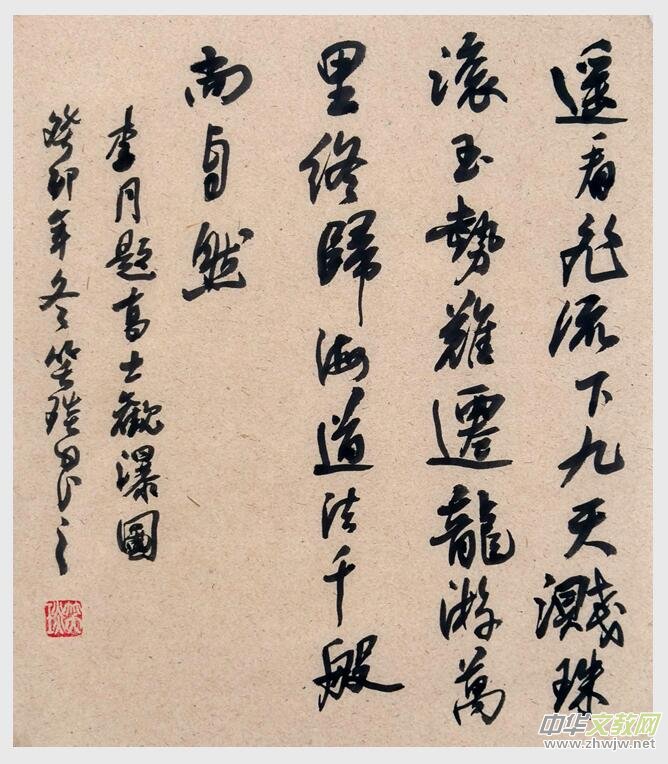 遥看飛流下九天濺珠
滚玉勢難遷龍游萬
里終歸海道法千般
尚自然
李月題高士觀瀑圖
癸卯年冬笑之
中华文教网
www.zhwjw.net